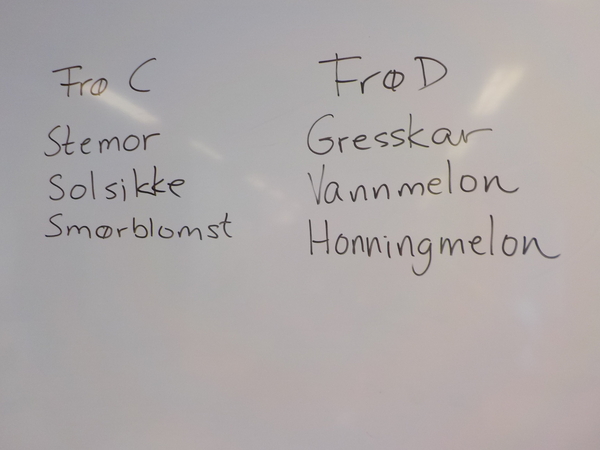 Frø C
Stemor
Solsikke
Smørblomst
Frø D
Gresskar
Vannmelon
Honningmelon